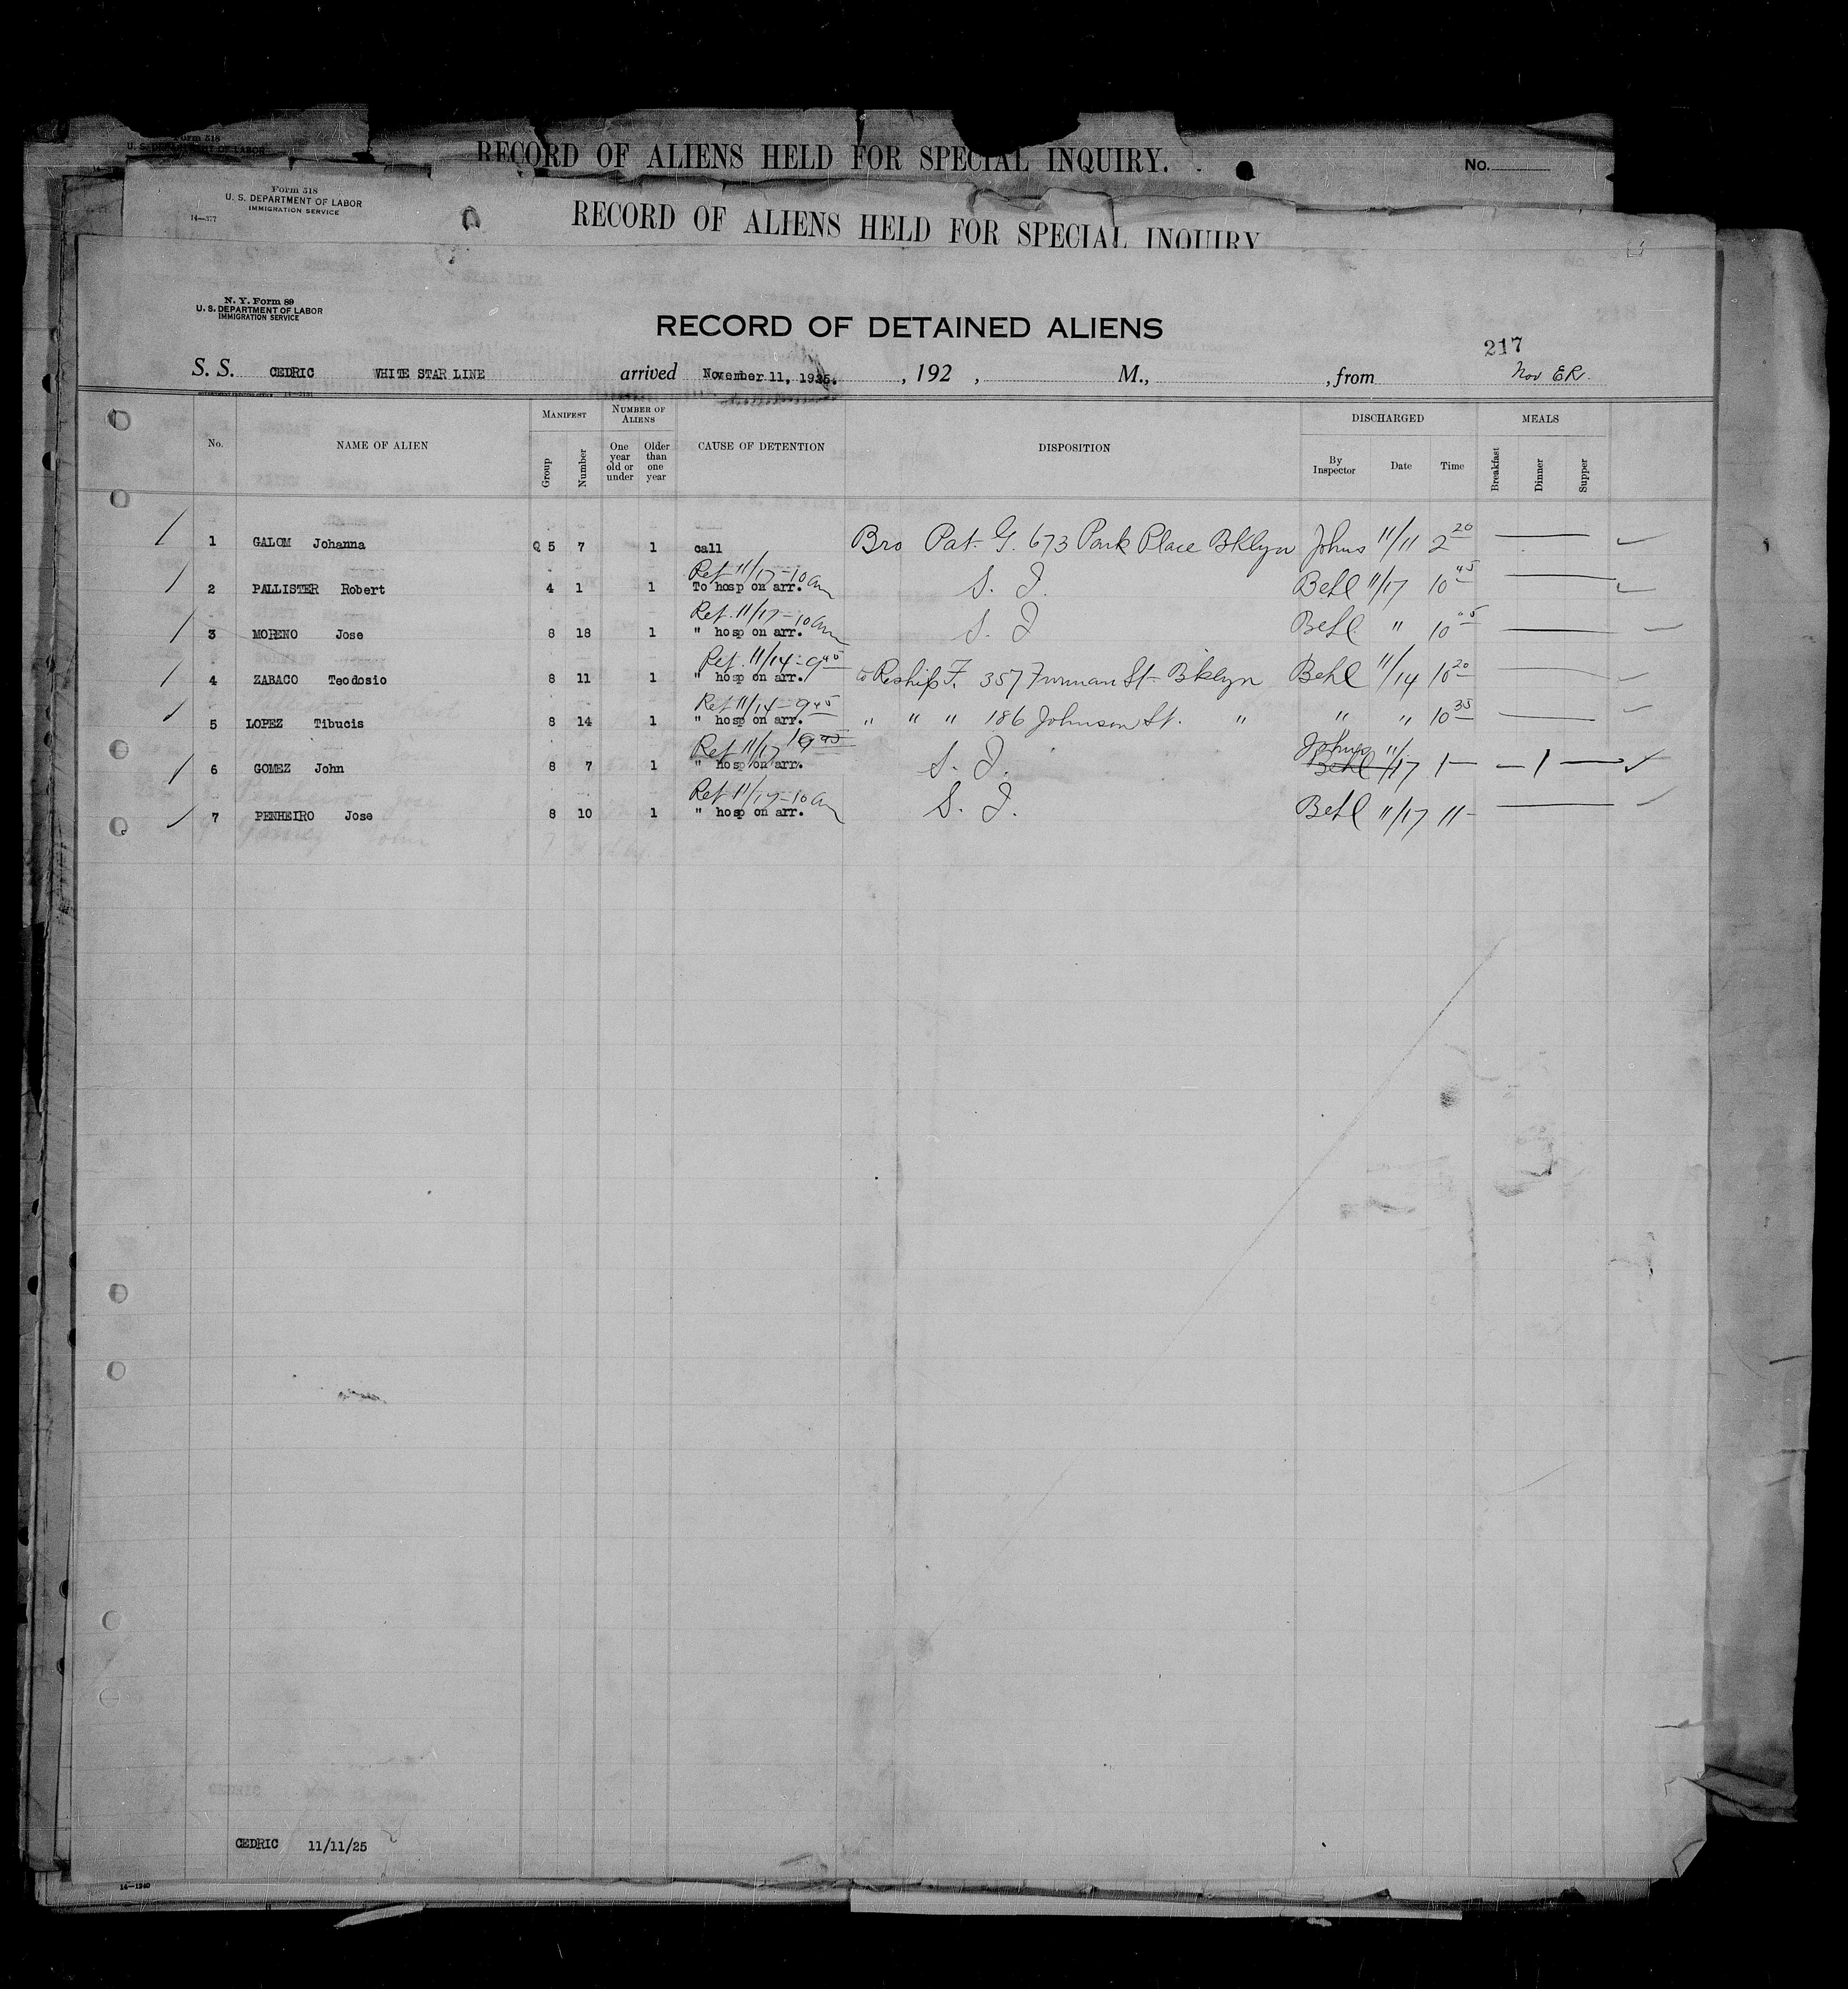 Form 518
U. S. DEPARTMENT OF LABOR
RECORD OF ALIENS HELD FOR SPECIAL INQUIRY.
No.
Form 518
U. S. DEPARTMENT OF LABOR
IMMIGRATION SERVICE
14—377
RECORD OF ALIENS HELD FOR SPECIAL INQUIRY
N. Y. Form 89
U. S. DEPARTMENT OF LABOR
IMMIGRATION SERVICE
RECORD OF DETAINED ALIENS
217
S. S. CEDRIC WHITE STAR LINE arrived November 11, 1925. , 192 , M., , from Nov ER.
No. NAME OF ALIEN MANIFEST Group Number NUMBER OF ALIENS One year old or under Older than one year CAUSE OF DETENTION DISPOSITION DISCHARGED By Inspector Date Time MEALS Breakfast Dinner Supper
1 GALOM Johanna Q 5 7 1 call Bro Pat. G. 673 Park Place Bklyn Johns 11/11 2 20
Ret 11/17-10 am
2 PALLISTER Robert 4 1 1 To hosp on arr. S. I. Behl 11/17 10 45
Ret. 11/17-10 am
3 MORENO Jose 8 18 1 " hosp on arr. S. I Behl " 10
Ret. 11/14-9 45
4 ZABACO Teodosio 8 11 1 " hosp on arr. Reship F. 357 Furman St- Bklyn Behl 11/14 10 20
Ret 11/14-9 45
5 LOPEZ Tibucis 8 14 1 " hosp on arr. " " " 186 Johnson St. " " " 10 35
Ret 11/17 Johns
6 GOMEZ John 8 7 1 " hosp on arr. S. I. Behl 11/17 1— — 1 —
Ret 11/17-10 am
7 PENHEIRO Jose 8 10 1 " hosp on arr. S. I. Behl 11/17 11-
CEDRIC 11/11/25
14—1940